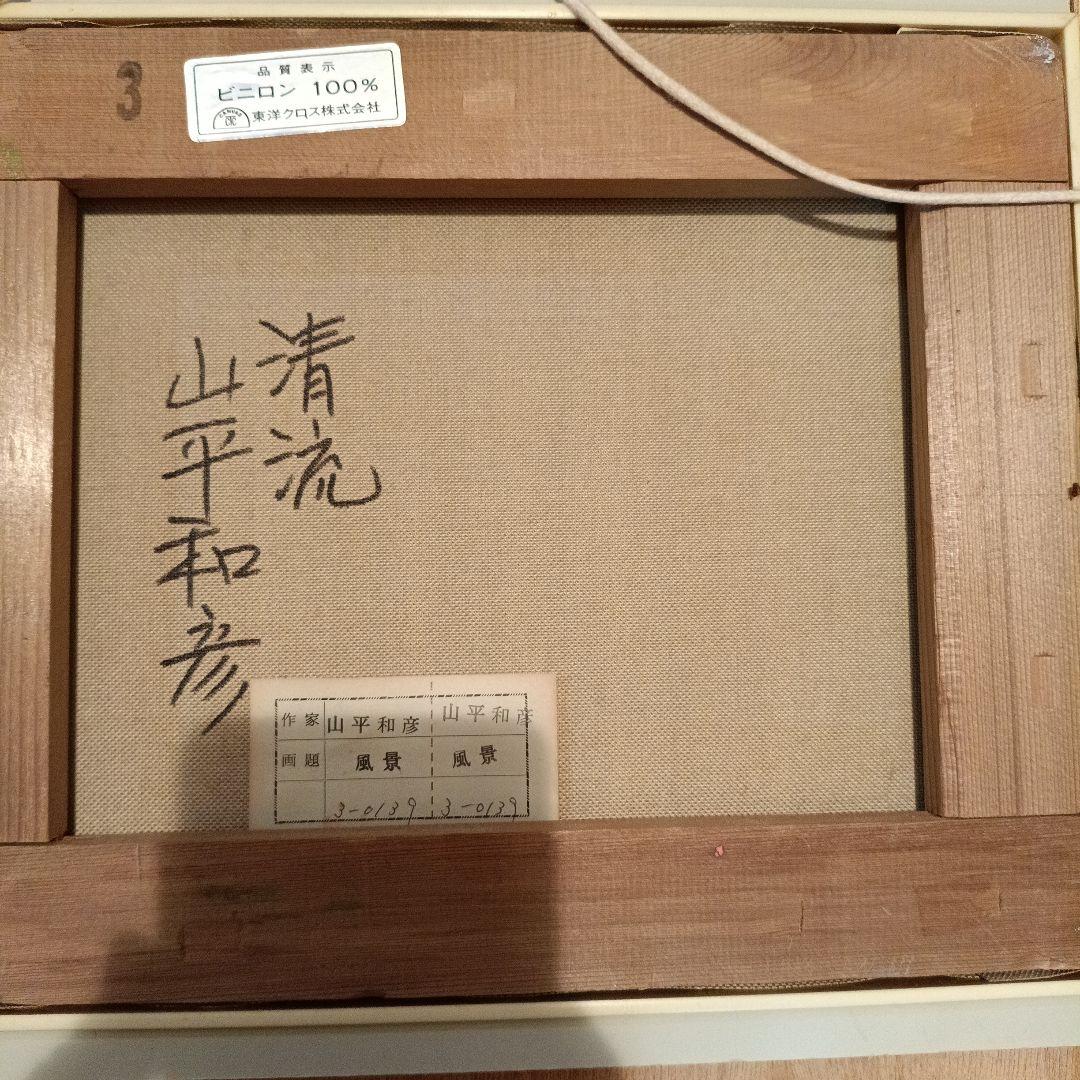 3
品質表示
ビニロン 100%
CANVAS
東洋クロス株式会社
清流
山平和彦
作家 山平和彦 山平和彦
画題 風景 風景
3-0139 3-0139